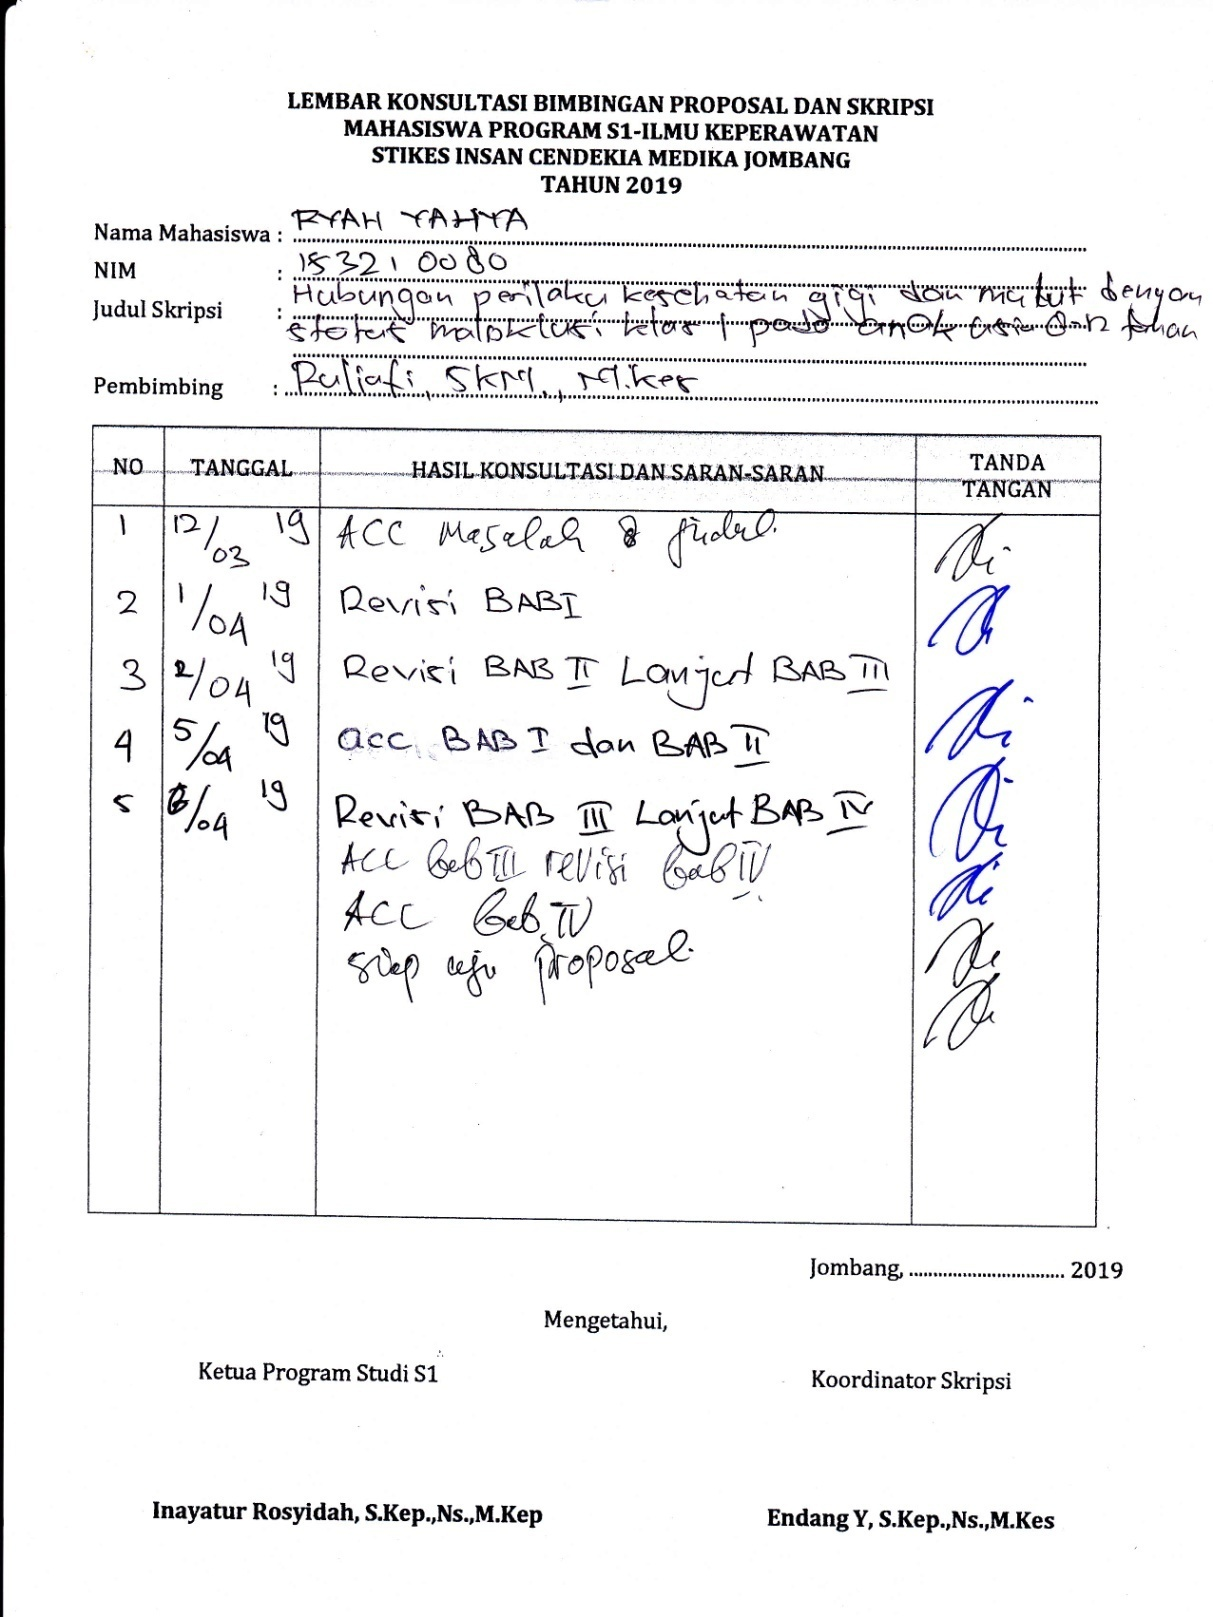 LEMBAR KONSULTASI BIMBINGAN PROPOSAL DAN SKRIPSI
MAHASISWA PROGRAM S1-ILMU KEPERAWATAN
STIKES INSAN CENDEKIA MEDIKA JOMBANG
TAHUN 2019
Nama Mahasiswa : RYAH YAHYA
NIM : 15321 0080
Judul Skripsi : Hubungan perilaku kesehatan gigi dan mulut dengan
status maloklusi kelas 1 pada anak usia tahun
Pembimbing : Ruliati, SKM., M.Kes
NO TANGGAL HASIL KONSULTASI DAN SARAN-SARAN TANDA TANGAN
1 12/03 19 ACC Masalah & judul.
2 1/04 19 Revisi BAB I
3 2/04 19 Revisi BAB II Lanjut BAB III
4 5/04 19 acc BAB I dan BAB II
5 6/04 19 Revisi BAB III Lanjut BAB IV
ACC bab III revisi bab IV
ACC bab IV
siap uji proposal.
Jombang, .............................. 2019
Mengetahui,
Ketua Program Studi S1 Koordinator Skripsi
Inayatur Rosyidah, S.Kep.,Ns.,M.Kep Endang Y, S.Kep.,Ns.,M.Kes